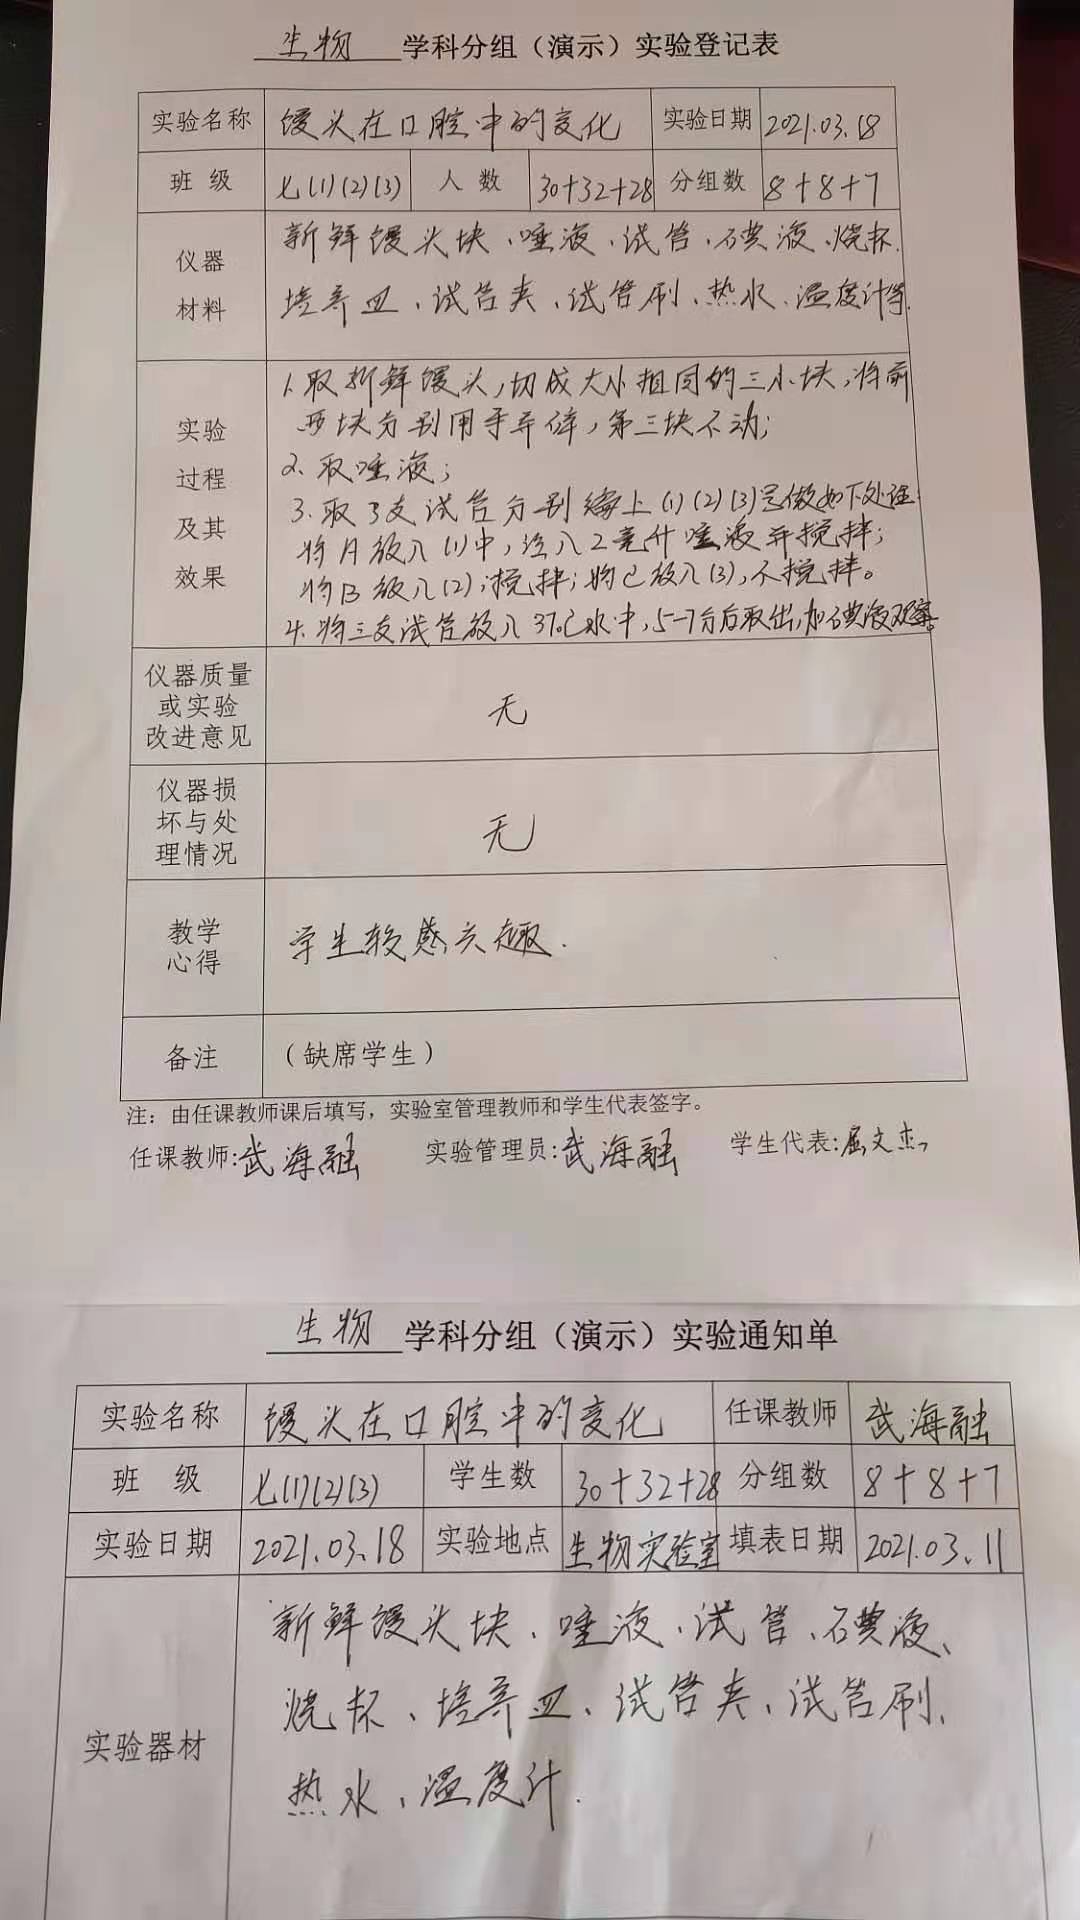 生物 学科分组（演示）实验登记表
实验名称 馒头在口腔中的变化 实验日期 2021.03.18
班 级 七(1)(2)(3) 人 数 30+32+28 分组数 8+8+7
仪器材料 新鲜馒头块、唾液、试管、碘液、烧杯、
培养皿、试管夹、试管刷、热水、温度计等.
实验过程及其效果
1.取新鲜馒头,切成大小相同的三小块,将前
两块分别用手弄碎,第三块不动;
2.取唾液;
3.取3支试管分别编上(1)(2)(3)号做如下处理:
将A放入(1)中,注入2毫升唾液并搅拌;
将B放入(2);搅拌;将C放入(3),不搅拌。
4.将三支试管放入37℃水中,5-7分后取出,加碘液观察。
仪器质量或实验改进意见 无
仪器损坏与处理情况 无
教学心得 学生较感兴趣.
备注 （缺席学生）
注：由任课教师课后填写，实验室管理教师和学生代表签字。
任课教师:武海融 实验管理员:武海融 学生代表:屈文杰
生物 学科分组（演示）实验通知单
实验名称 馒头在口腔中的变化 任课教师 武海融
班 级 七(1)(2)(3) 学生数 30+32+28 分组数 8+8+7
实验日期 2021.03.18 实验地点 生物实验室 填表日期 2021.03.11
实验器材 新鲜馒头块、唾液、试管、碘液、
烧杯、培养皿、试管夹、试管刷、
热水、温度计.